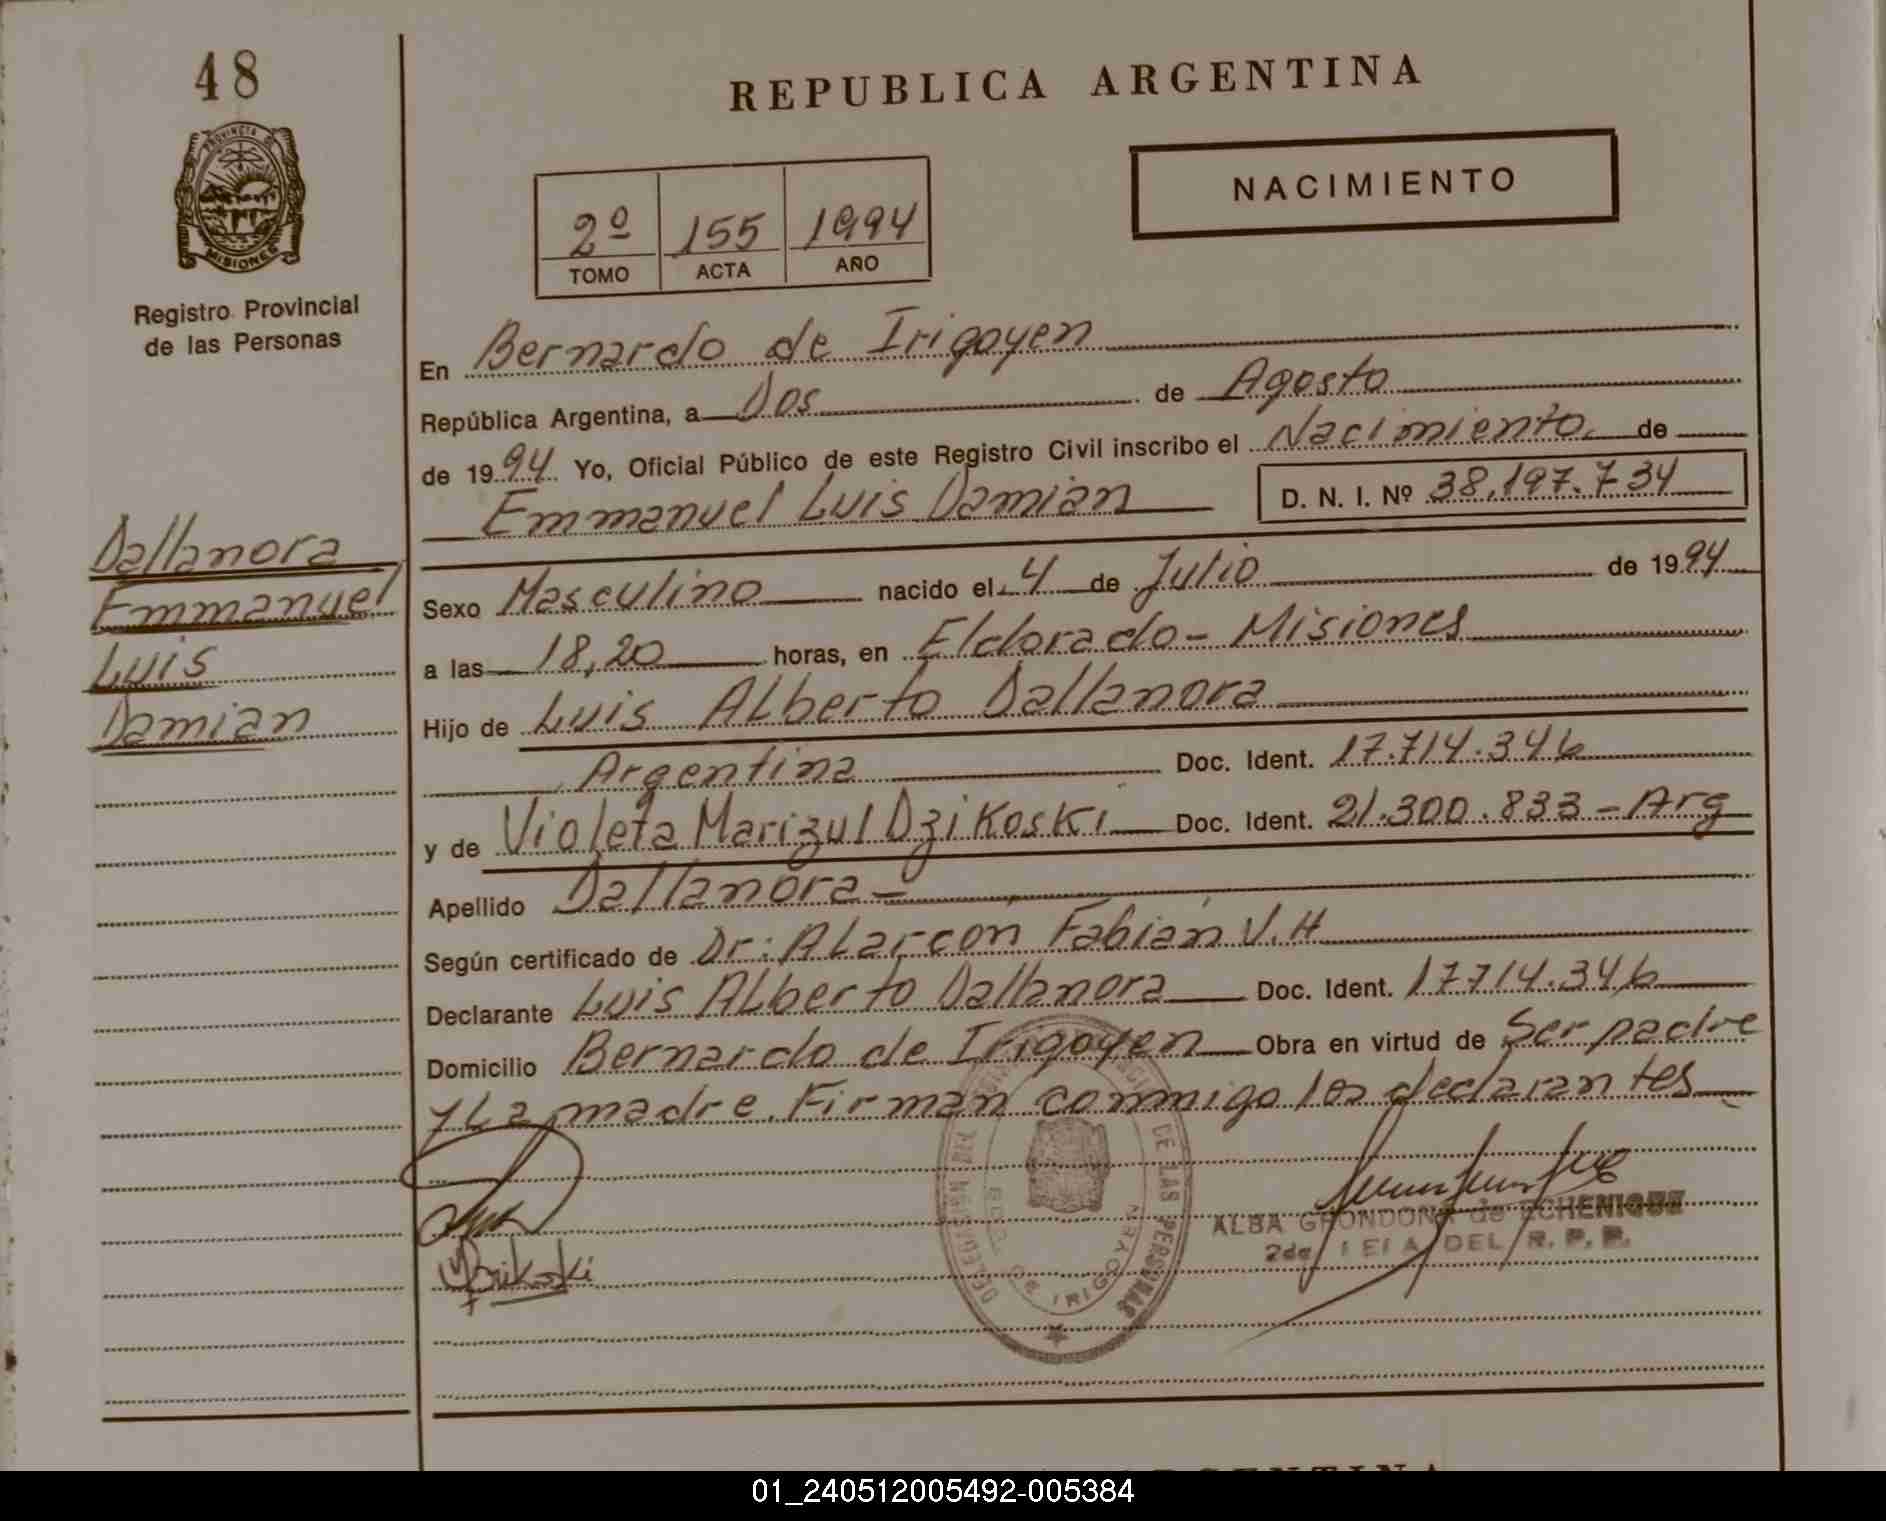 48
REPUBLICA ARGENTINA
PROVINCIA DE
MISIONES
NACIMIENTO
2º 155 1994
TOMO ACTA AÑO
Registro Provincial
de las Personas
En Bernardo de Irigoyen
República Argentina, a Dos de Agosto
de 1994 Yo, Oficial Público de este Registro Civil inscribo el Nacimiento de
Emmanuel Luis Damian D. N. I. Nº 38.197.734
Dallanora
Emmanuel
Luis
Damian
Sexo Masculino nacido el 4 de Julio de 1994
a las 18,20 horas, en Eldorado - Misiones
Hijo de Luis Alberto Dallanora
Argentina Doc. Ident. 17.714.346
y de Violeta Marizul Dzikoski Doc. Ident. 21.300.833 - Arg
Apellido Dallanora -
Según certificado de Dr: Alarcón Fabián V.H
Declarante Luis Alberto Dallanora Doc. Ident. 17714.346
Domicilio Bernardo de Irigoyen Obra en virtud de Ser padre
y La madre. Firman conmigo los declarantes
DE LAS PERSONAS
DE IRIGOYEN
ALBA GRONDONA de ECHENIQUE
2da DEL R. P. P.
01_240512005492-005384